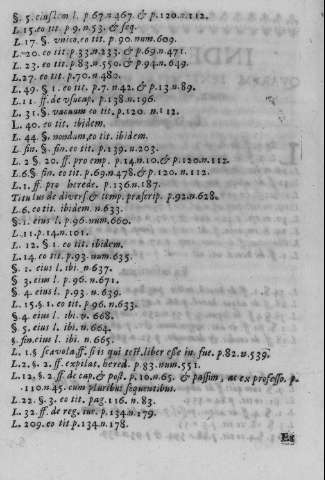 §. 5. eiusdem l. p.67.n.467. & p.120.n.112.
L.15.eo tit p.9.n.53. & seq.
L.17. §. vnico,eo tit. p.90. num.609.
L..20. eo tit. p.33.n.233. & p.69.n.471.
L. 23. eo tit. p.83.n.550.& p.94.n.649.
L.27. eo tit. p.70.n.480.
L.49. § 1. eo tit. p.7. n.42. & p.13 n.89.
L.11. ff. de vsucap. p.138.n.196.
L. 31.§. vacuum eo tit. p.120. n.112.
L. 40. eo tit. ibidem.
L. 44. §. nondum,eo tit. ibidem.
L. fin. §. fin. eo tit. p.139. n.203.
L. 2 §. 20. ff. pro emp. p.14.n.10.& p.120.n.112.
L.6.§. fin. eo tit. p.69.n.478.& p.120. n.112.
L.1. ff. pro herede. p.136.n.187.
Titulus de divers & temp. praescrip. p.92.n.628.
L.6. eo tit. ibidem n.633.
§.1. eius l. p.96.num.660.
L.11.p.14.n.101.
L. 12. §.1. eo tit. ibidem.
L.14. eo tit. p.93. num.635.
§. 2. eius l. ibi. n.637.
§ 3. eius l. p.96. n.671.
§. 4. eius l. p.93. n.639.
L.15.§.1. eo tit. p.96. n.633.
§.4. eius l. ibi. n. 668.
§ 5. eius l. ibi. n.664.
§.fin.eius l. ibi. n.665.
L. 1.§ scævola.ff. si is qui test.liber esse in. fue. p.82.n.539.
L.2.§.2. ff. expilat. hered. p.83.num.551.
L.12.§.2. ff. de cap.& post. p.10.n.65. & passim, ac ex professo. p.
110.n.45. cum pluribus sequentibus.
L.22. §.3. eo tit. pag.116. n.83.
L. 32. ff. de reg. iur. p.134.n.179.
L. 209. eo tit p.134.n.178.
Ex